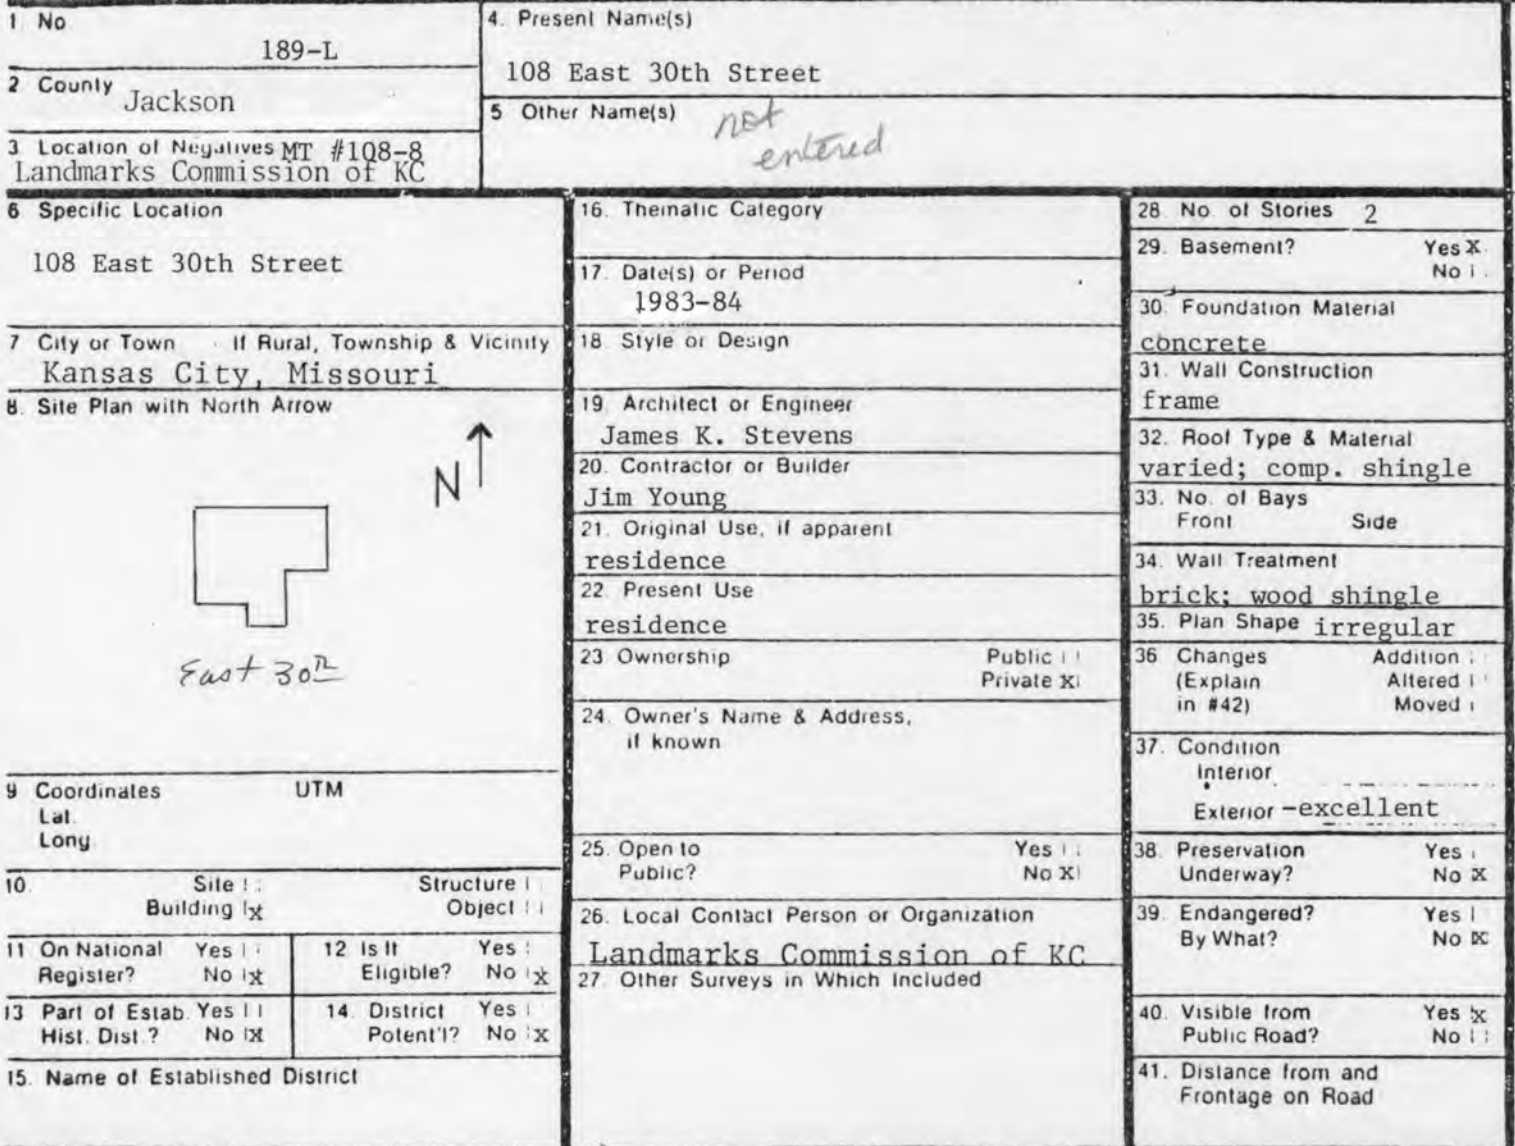 1 No
189-L
2 County Jackson
3 Location of Negatives MT #108-8
Landmarks Commission of KC
4. Present Name(s)
108 East 30th Street
5 Other Name(s) not
entered
6 Specific Location
108 East 30th Street
7 City or Town If Rural, Township & Vicinity
Kansas City, Missouri
8. Site Plan with North Arrow
N
East 30th
9 Coordinates UTM
Lat.
Long.
10. Site Structure
Building x Object
11 On National Yes
Register? No x
12 Is It Yes
Eligible? No x
13 Part of Estab. Yes
Hist. Dist.? No X
14. District Yes
Potent'l? No X
15. Name of Established District
16. Thematic Category
17. Date(s) or Period
1983-84
18. Style or Design
19. Architect or Engineer
James K. Stevens
20. Contractor or Builder
Jim Young
21. Original Use, if apparent
residence
22. Present Use
residence
23 Ownership Public
Private X
24. Owner's Name & Address,
if known
25. Open to Yes
Public? No X
26. Local Contact Person or Organization
Landmarks Commission of KC
27. Other Surveys in Which Included
28. No. of Stories 2
29. Basement? Yes X
No
30. Foundation Material
concrete
31. Wall Construction
frame
32. Roof Type & Material
varied; comp. shingle
33. No. of Bays
Front Side
34. Wall Treatment
brick; wood shingle
35. Plan Shape irregular
36 Changes Addition
(Explain Altered
in #42) Moved
37. Condition
Interior
Exterior -excellent
38. Preservation Yes
Underway? No X
39. Endangered? Yes
By What? No X
40. Visible from Yes x
Public Road? No
41. Distance from and
Frontage on Road